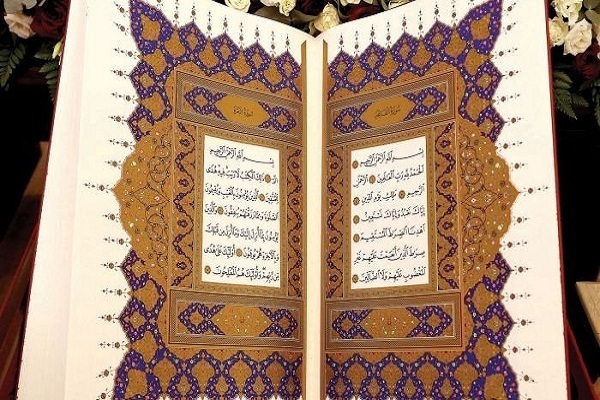 سُورَةُ الْفَاتِحَةِ
بِسْمِ اللَّهِ الرَّحْمٰنِ الرَّحِيمِ
اَلْحَمْدُ لِلَّهِ رَبِّ الْعَالَمِينَ ۝ اَلرَّحْمٰنِ
الرَّحِيمِ ۝ مَالِكِ يَوْمِ الدِّينِ
۝ إِيَّاكَ نَعْبُدُ وَإِيَّاكَ نَسْتَعِينُ ۝
اِهْدِنَا الصِّرَاطَ الْمُسْتَقِيمَ ۝
صِرَاطَ الَّذِينَ أَنْعَمْتَ عَلَيْهِمْ غَيْرِ
الْمَغْضُوبِ عَلَيْهِمْ وَلَا الضَّالِّينَ ۝
سُورَةُ الْبَقَرَةِ
بِسْمِ اللَّهِ الرَّحْمٰنِ الرَّحِيمِ
الٓمٓ ۝ ذٰلِكَ الْكِتَابُ لَا رَيْبَ فِيهِ هُدًى
لِلْمُتَّقِينَ ۝ اَلَّذِينَ يُؤْمِنُونَ بِالْغَيْبِ وَيُقِيمُونَ
الصَّلٰوةَ وَمِمَّا رَزَقْنَاهُمْ يُنْفِقُونَ ۝ وَالَّذِينَ
يُؤْمِنُونَ بِمَا أُنْزِلَ إِلَيْكَ وَمَا أُنْزِلَ مِنْ قَبْلِكَ
وَبِالْآخِرَةِ هُمْ يُوقِنُونَ ۝ أُولٰئِكَ عَلٰى هُدًى
مِنْ رَبِّهِمْ وَأُولٰئِكَ هُمُ الْمُفْلِحُونَ ۝